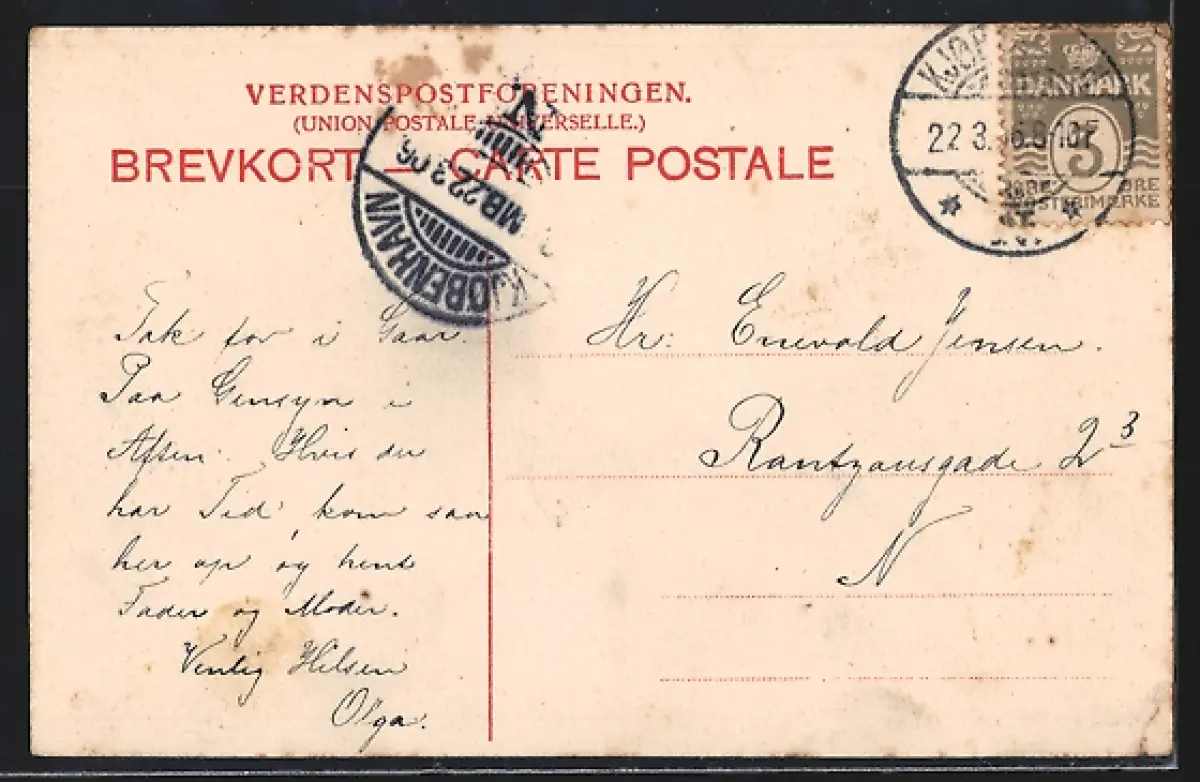 VERDENSPOSTFORENINGEN.
(UNION POSTALE UNIVERSELLE.)
BREVKORT — CARTE POSTALE
KJØBENHAVN
MB. 22 3 06
V
KJØB
22 3. 6. 8-10F
DANMARK
5
ØRE
POSTFRIMÆRKE
Tak for i Gaar.
Paa Gensyn i
Aften. Hvis du
har Tid kom saa
her op og hent
Fader og Moder.
Venlig Hilsen
Olga.
Hr: Enevold Jensen.
Rantzausgade 2 3
N